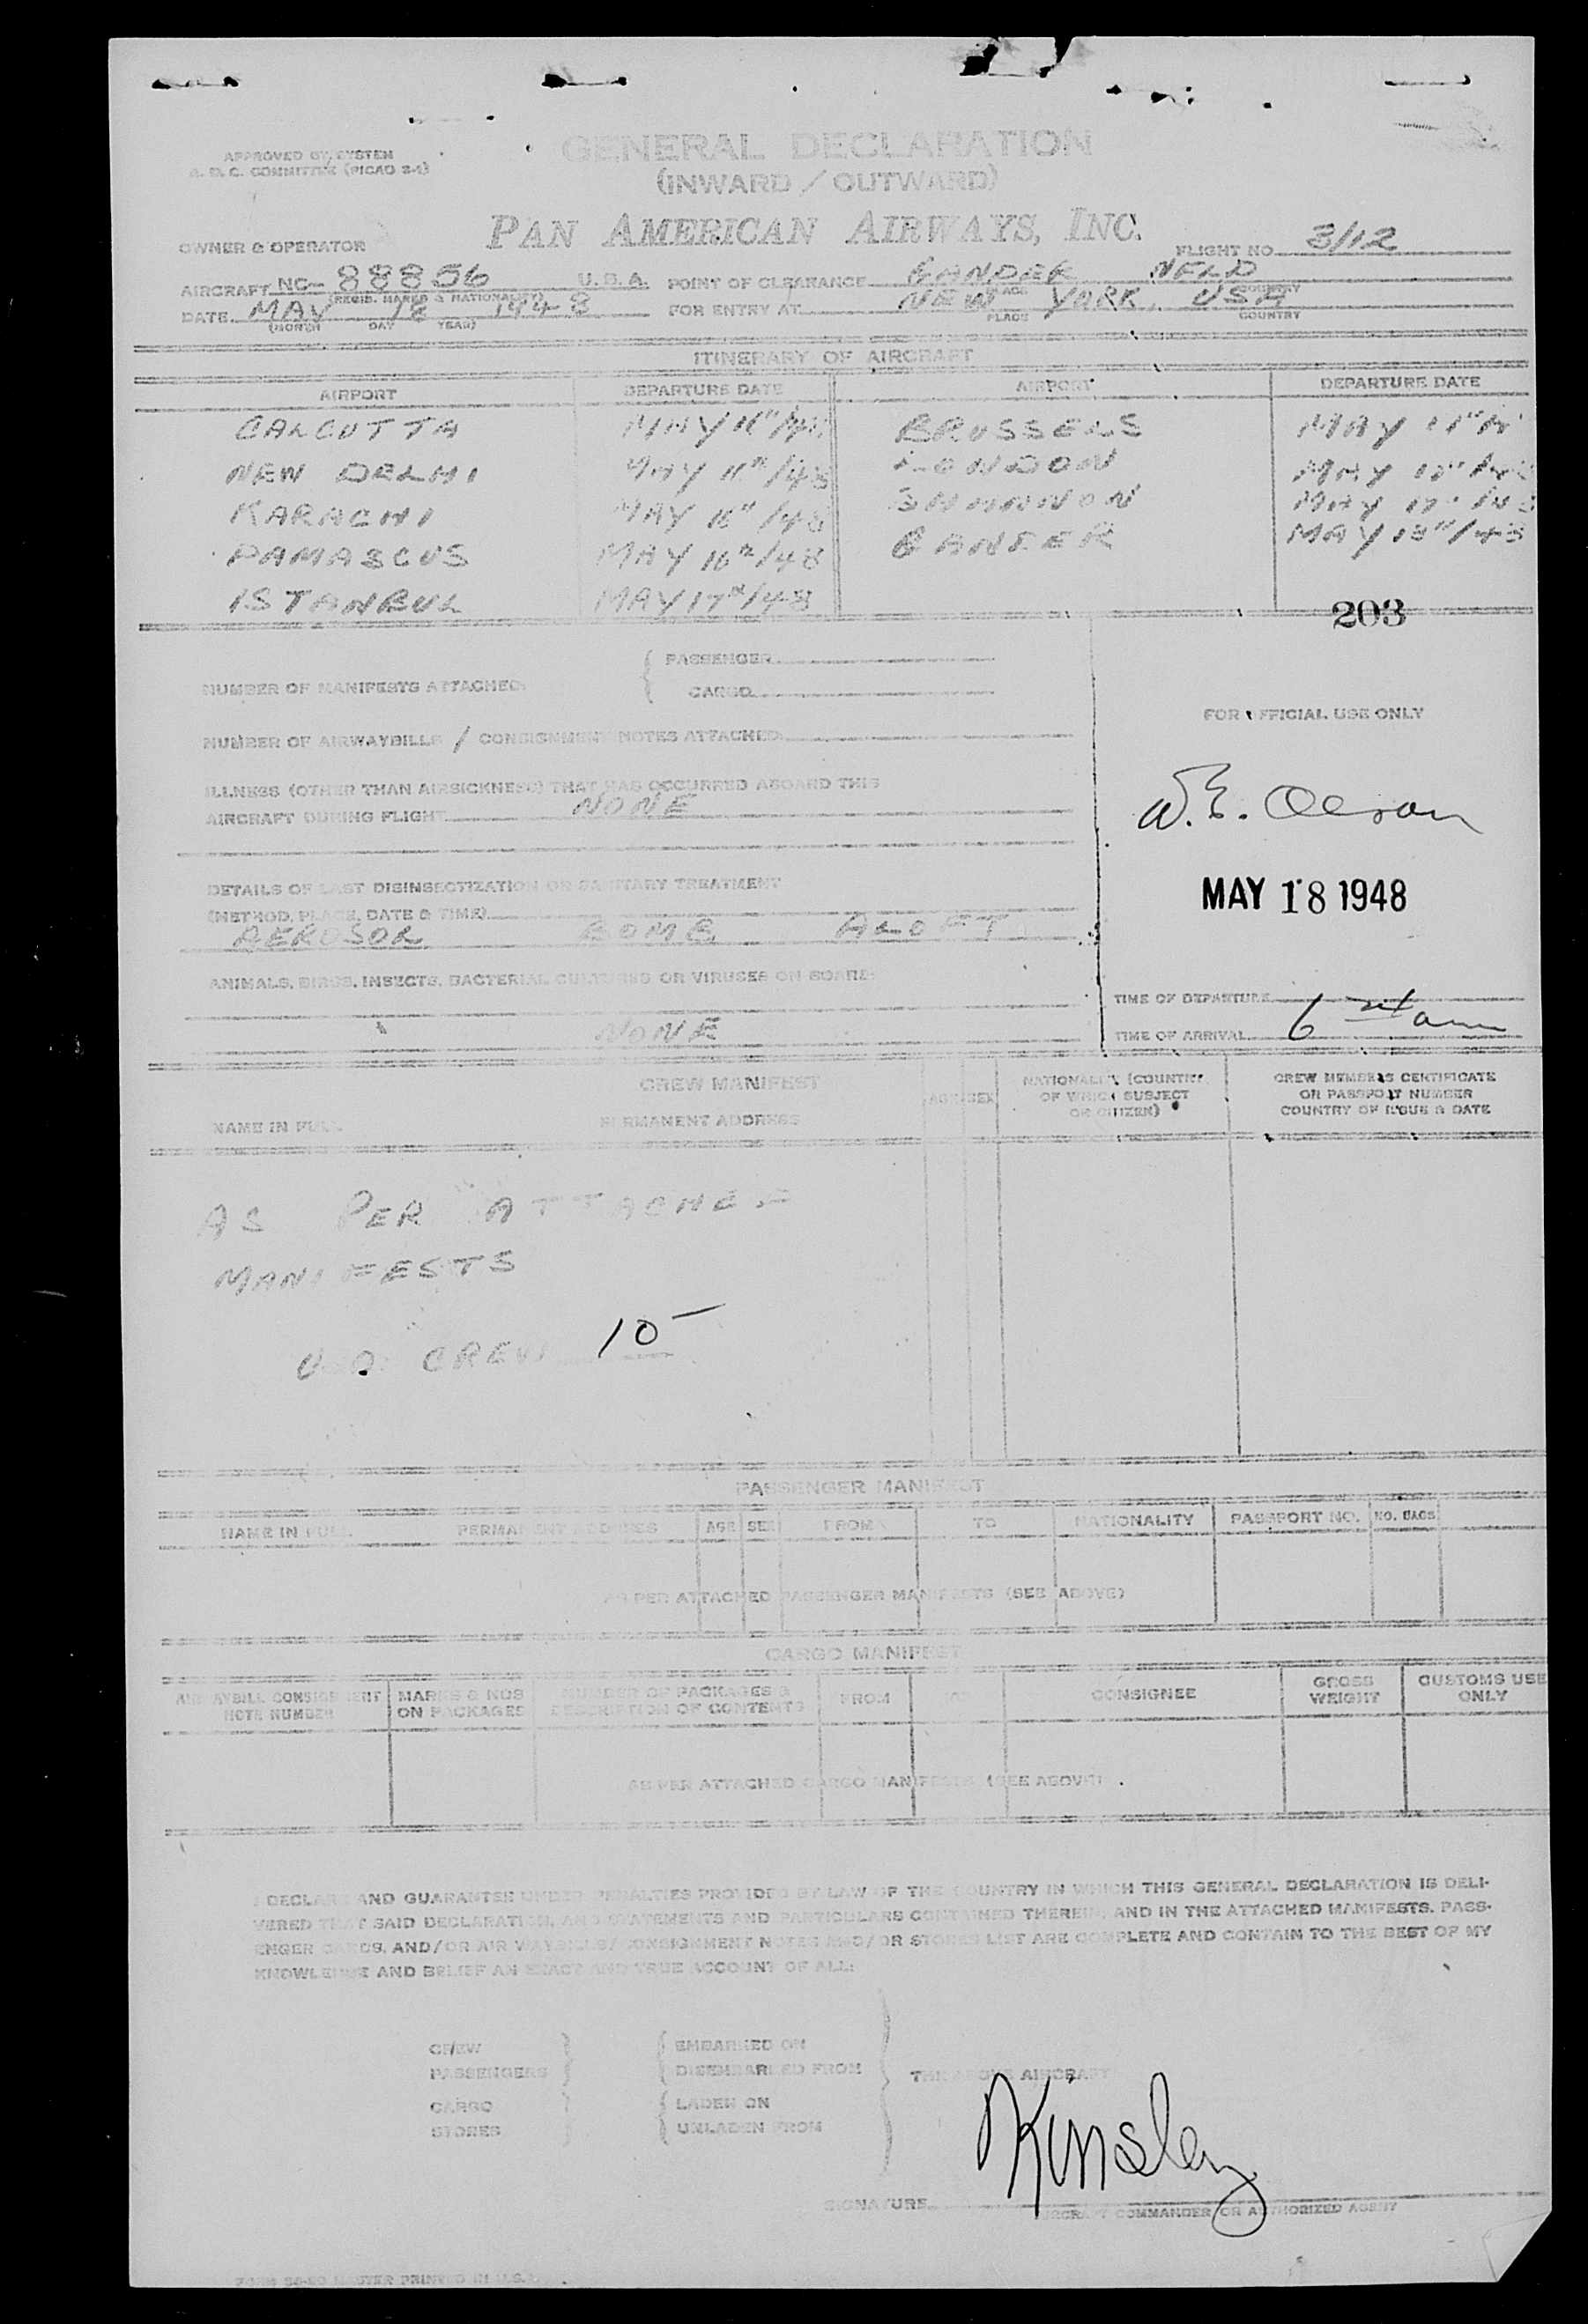 APPROVED BY SYSTEM
COMMITTEE (PICAO 2-1)
GENERAL DECLARATION
(INWARD / OUTWARD)
PAN AMERICAN AIRWAYS, INC.
OWNER & OPERATOR
FLIGHT NO. 3/12
AIRCRAFT NC- 88856 U.S.A. POINT OF CLEARANCE GANDER NFLD
(REGIS. MARKS & NATIONALITY) PLACE COUNTRY
DATE MAY 18 1948 FOR ENTRY AT NEW YORK, USA
(MONTH DAY YEAR) PLACE COUNTRY
ITINERARY OF AIRCRAFT
AIRPORT DEPARTURE DATE AIRPORT DEPARTURE DATE
CALCUTTA MAY /48 BRUSSELS MAY
NEW DELHI MAY /48 LONDON MAY
KARACHI MAY 16" /48 SHANNON MAY
DAMASCUS MAY 16"/48 GANDER MAY 18"/48
ISTANBUL MAY 17"/48
203
NUMBER OF MANIFESTS ATTACHED: { PASSENGER
CARGO
FOR OFFICIAL USE ONLY
NUMBER OF AIRWAYBILLS / CONSIGNMENT NOTES ATTACHED
ILLNESS (OTHER THAN AIRSICKNESS) THAT HAS OCCURRED ABOARD THIS
AIRCRAFT DURING FLIGHT NONE
W.E. Olson
DETAILS OF LAST DISINSECTIZATION OR SANITARY TREATMENT
MAY 18 1948
(METHOD, PLACE, DATE & TIME)
AEROSOL BOMB ALOFT
ANIMALS, BIRDS, INSECTS, BACTERIAL CULTURES OR VIRUSES ON BOARD:
NONE
TIME OF DEPARTURE
TIME OF ARRIVAL 6 am
CREW MANIFEST
NAME IN FULL PERMANENT ADDRESS AGE SEX NATIONALITY (COUNTRY OF WHICH SUBJECT OR CITIZEN) CREW MEMBERS CERTIFICATE OR PASSPORT NUMBER COUNTRY OF ISSUE & DATE
AS PER ATTACHED
MANIFESTS
CREW 10
PASSENGER MANIFEST
NAME IN FULL PERMANENT ADDRESS AGE SEX FROM TO NATIONALITY PASSPORT NO. NO. BAGS
AS PER ATTACHED PASSENGER MANIFESTS (SEE ABOVE)
CARGO MANIFEST
AIRWAYBILL CONSIGNMENT NOTE NUMBER MARKS & NOS ON PACKAGES NUMBER OF PACKAGES & DESCRIPTION OF CONTENTS FROM TO CONSIGNEE GROSS WEIGHT CUSTOMS USE ONLY
AS PER ATTACHED CARGO MANIFESTS (SEE ABOVE)
I DECLARE AND GUARANTEE UNDER PENALTIES PROVIDED BY LAW OF THE COUNTRY IN WHICH THIS GENERAL DECLARATION IS DELI-
VERED THAT SAID DECLARATION, AND STATEMENTS AND PARTICULARS CONTAINED THEREIN, AND IN THE ATTACHED MANIFESTS, PASS-
ENGER CARDS, AND/OR AIR WAYBILLS/CONSIGNMENT NOTES AND/OR STORES LIST ARE COMPLETE AND CONTAIN TO THE BEST OF MY
KNOWLEDGE AND BELIEF AN EXACT AND TRUE ACCOUNT OF ALL:
CREW { EMBARKED ON
PASSENGERS } DISEMBARKED FROM THE ABOVE AIRCRAFT
CARGO { LADEN ON
STORES } UNLADEN FROM
Kinsley
SIGNATURE
AIRCRAFT COMMANDER OR AUTHORIZED AGENT